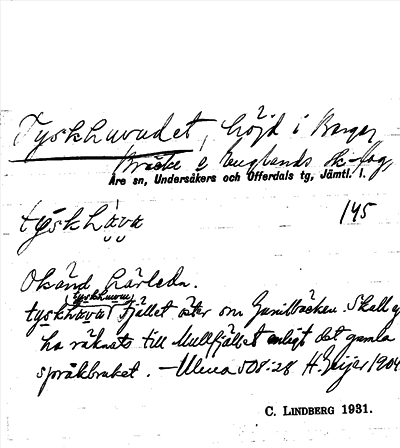 Tyskhuvudet, höjd i Berge,
Bräcke o Englands sk-lag,
Åre sn, Undersåkers och Offerdals tg, Jämtl. l.
tyskhåva
145
Okänd härleda.
(tyskhuvud)
tyskhåva fjället öster om Gamilbäcken. Skall ej
ha räknats till Mullfjället enligt det gamla
språkbruket. – Ulma 508:28 H. Geijer 1904
C. LINDBERG 1931.